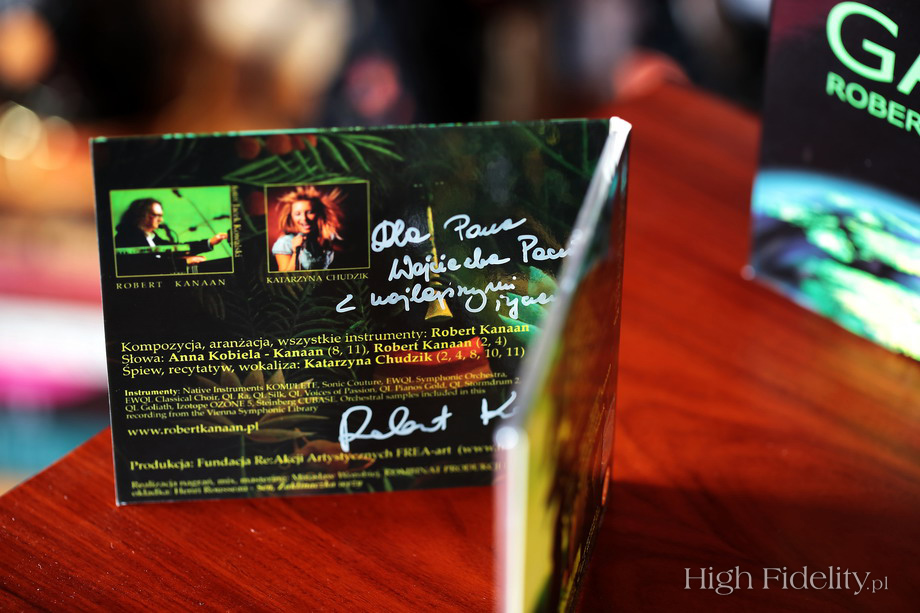 GA
ROBER
ROBERT KANAAN
KATARZYNA CHUDZIK
Dla Pana
Wojciecha Pacu
z najlepszymi
życze
Kompozycja, aranżacja, wszystkie instrumenty: Robert Kanaan
Słowa: Anna Kobiela - Kanaan (8, 11), Robert Kanaan (2, 4)
Śpiew, recytatyw, wokaliza: Katarzyna Chudzik (2, 4, 8, 10, 11)
Instrumenty: Native Instruments KOMPLETE, Sonic Couture, EWQL Symphonic Orchestra,
EWQL Classical Choir, QL Ra, QL Silk, QL Voices of Passion, QL Pianos Gold, QL Stormdrum 2,
QL Goliath, Izotope OZONE 5, Steinberg CUBASE. Orchestral samples included in this
recording from the Vienna Symphonic Library
www.robertkanaan.pl
Robert K
Produkcja: Fundacja Re:Akcji Artystycznych FREA-art (www.
Realizacja nagrań, mix, mastering: KOMBINAT PRODUKCJI
okładka: Henri Rousseau -
High Fidelity.pl